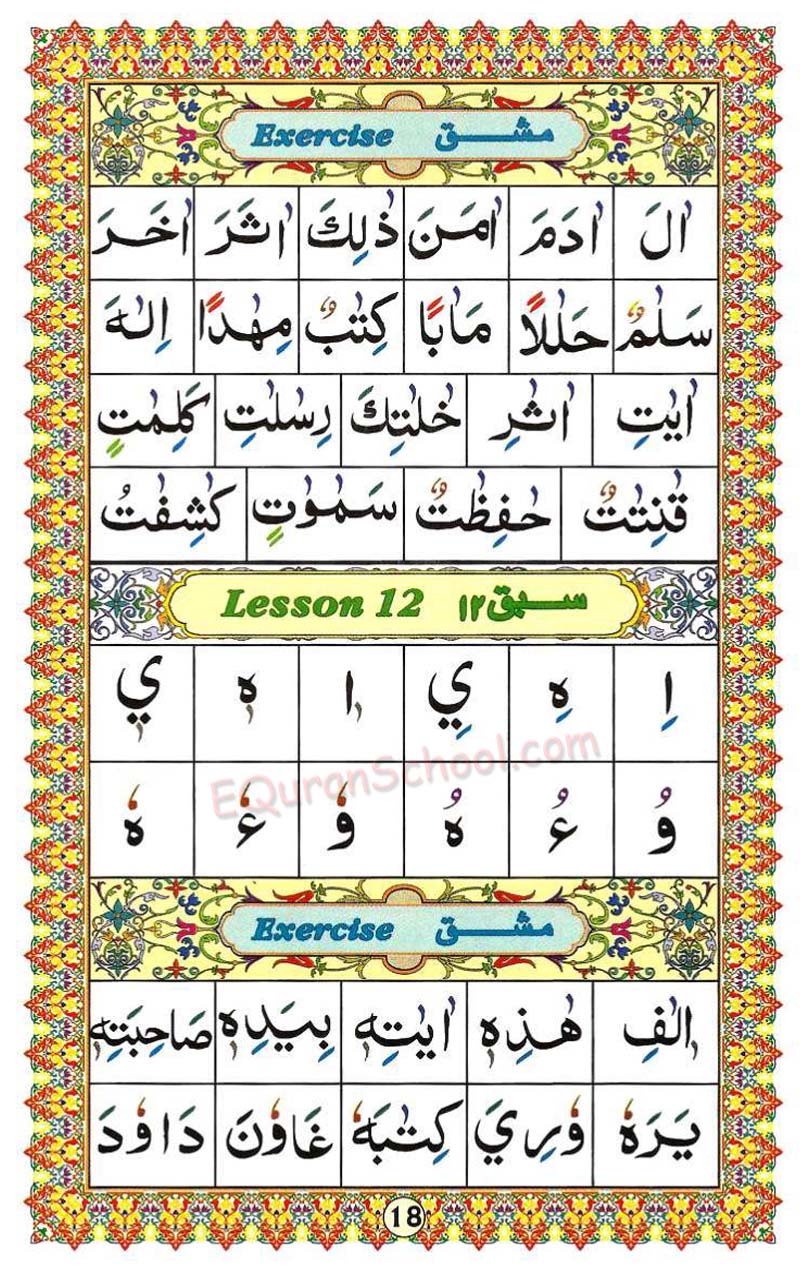 Exercise مشق
اٰلَ اٰدَمَ اٰمَنَ ذٰلِكَ اٰثَرَ اٰخَرَ
سَلٰمٌ حَلٰلًا مَاٰبًا كِتٰبٌ مِهٰدًا اِلٰهَ
اٰيٰتِ اٰثٰرِ خٰلٰتِكَ رِسٰلٰتِ كَلِمٰتٍ
قٰنِتٰتٌ حٰفِظٰتٌ سَمٰوٰتٍ كٰشِفٰتُ
Lesson 12 سبق ١٢
اِ هِ يِ اٖ هٖ يٖ
وُ ءُ هُ وٗ ءٗ هٗ
Exercise مشق
اٖلٰفِ هٰذِهٖ اٰيٰتِهٖ بِيَدِهٖ صَاحِبَتِهٖ
يَرَهٗ وٗرِيَ كِتٰبَهٗ غَاوٗنَ دَاوٗدَ
18
EQuranSchool.com